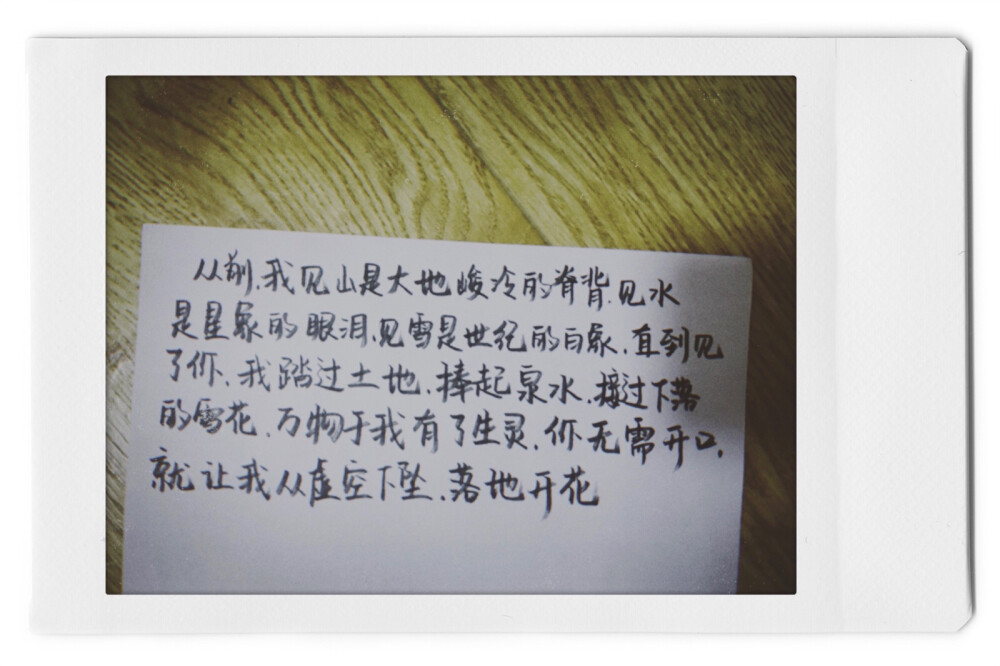 从前,我见山是大地峻冷的脊背,见水
是星象的眼泪,见雪是世纪的白象,直到见
了你,我踏过土地,捧起泉水,接过下落
的雪花,万物于我有了生灵,你无需开口,
就让我从虚空下坠,落地开花